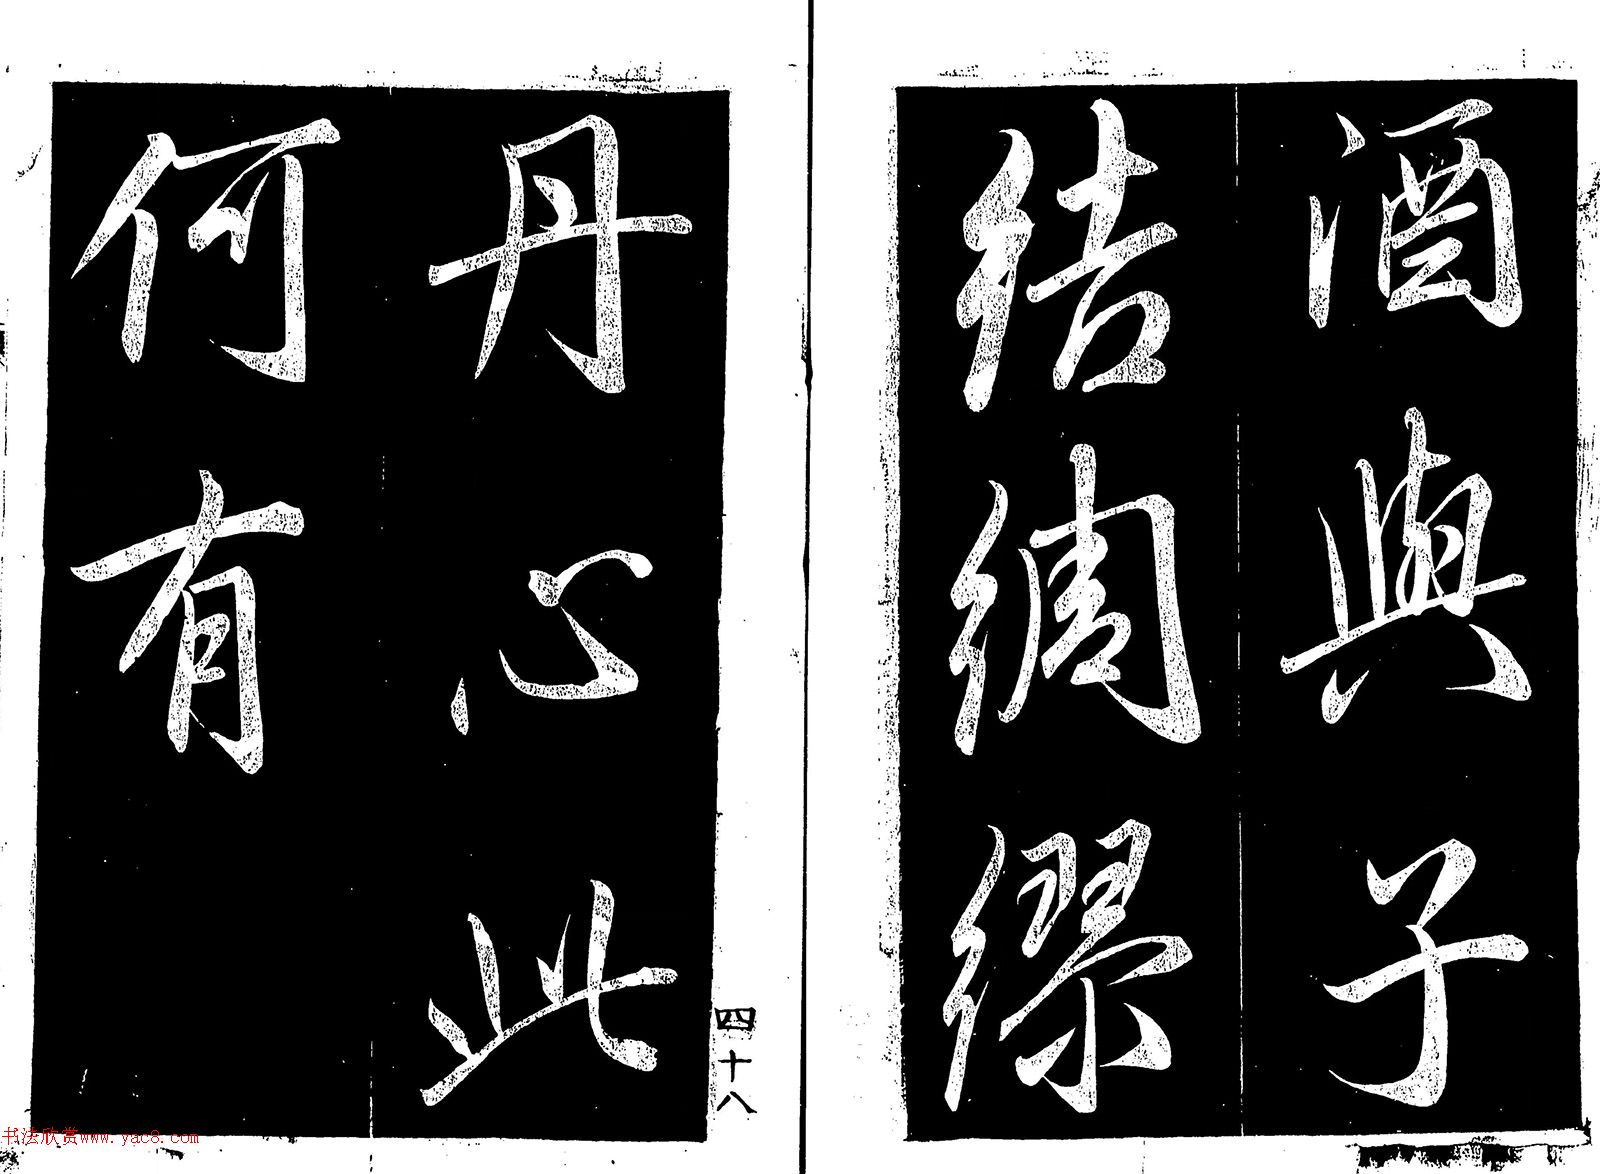 酒與子
結綢繆
丹心此
何有
四十八
书法欣赏www.yac8.com